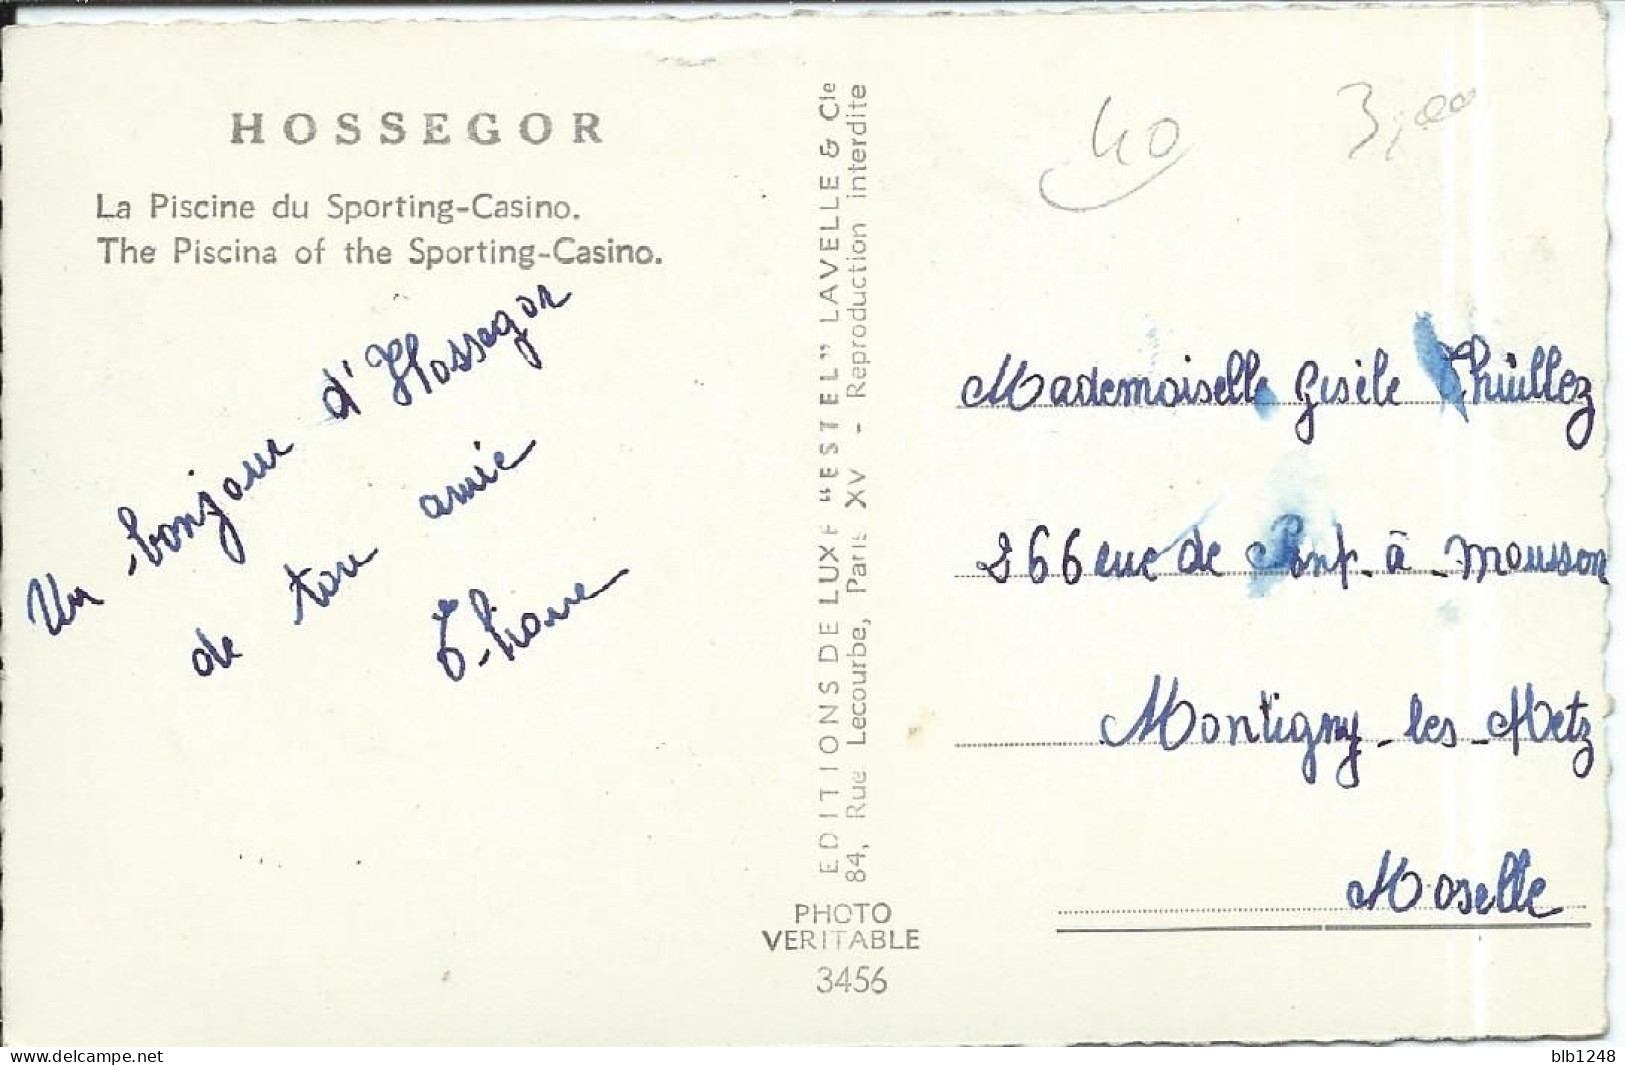 HOSSEGOR
La Piscine du Sporting-Casino.
The Piscina of the Sporting-Casino.
Un bonjour d'Hossegor
de ton amie
EDITIONS DE LUXE "ESTEL" LAVELLE & Cie
84, Rue Lecourbe, Paris XV - Reproduction interdite
PHOTO
VERITABLE
3456
40
3,00
Mademoiselle Gisèle Thuillez
266 rue de Pont-à-Mousson
Montigny-les-Metz
Moselle
www.delcampe.net
blb1248